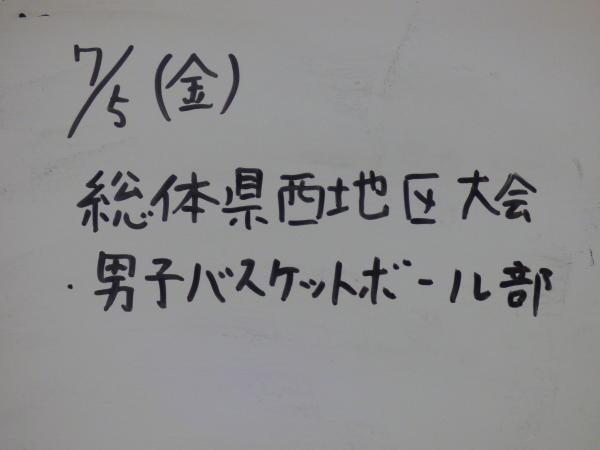 7/5(金)
総体県西地区大会
・男子バスケットボール部